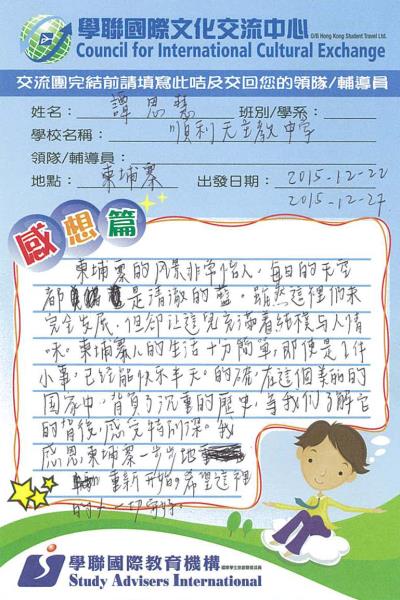 學聯國際文化交流中心
O/B Hong Kong Student Travel Ltd.
Council for International Cultural Exchange
交流團完結前請填寫此咭及交回您的領隊/輔導員
姓名： 譚思慧 班別/學系：
學校名稱： 順利天主教中學
領隊/輔導員：
地點： 柬埔寨 出發日期： 2015-12-22
2015-12-27
感想篇
柬埔寨的风景非常怡人，每日的天空
都是清澈的藍。雖然這裡仍未
完全发展，但卻让這兒充滿着純樸与人情
味。柬埔寨人的生活十分簡單，即使是1件
小事，已經能快乐半天。的確，在這個美麗的
国家中，背負了沉重的歷史，当我们了解它
的背後，感受特別深。我
感恩柬埔寨一步步地
重新开始，希望這裡
的人一切安好。
學聯國際教育機構
Study Advisers International